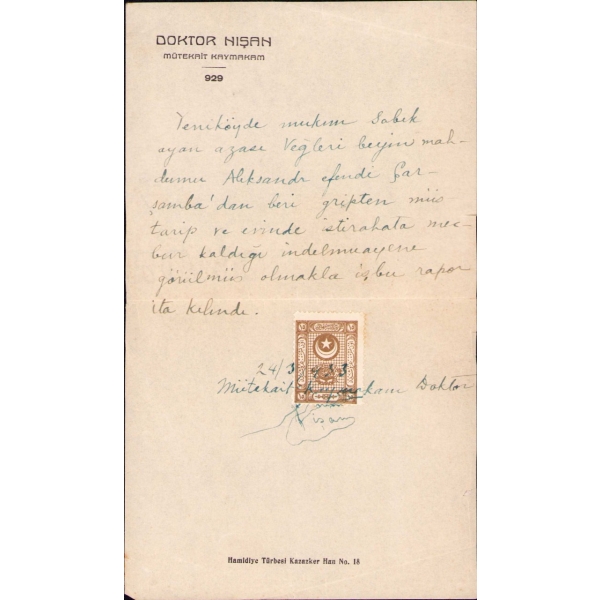 DOKTOR NIŞAN
MÜTEKAİT KAYMAKAM
929
Yeniköyde mukim Sabık
ayan azası Veğleri beyin mah-
dumu Aleksandr efendi Çar-
şamba'dan beri gripten müz
tarip ve evinde istirahata mec-
bur kaldığı indelmuayene
görülmüş olmakla işbu rapor
ita kılındı.
24/3/933
Mütekait Kaymakam Doktor
Nişan
Hamidiye Türbesi Kazazker Han No. 18